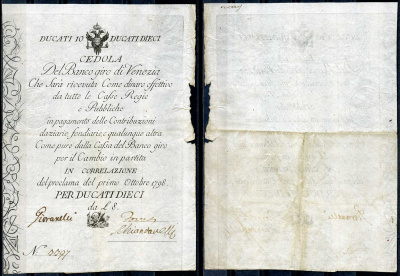 DUCATI 10 DUCATI DIECI
CEDOLA
Del Banco giro di Venezia
Che Sarà ricevuta Come dinaro effettivo
da tutte le Casse Regie
e Pubbliche
in pagamento delle Contribuzioni
daziarie, fondiarie, e qualunque altra
Come pure dalla Cassa del Banco giro
per il Cambio in partita
IN CORRELAZIONE
del proclama del primo Ottobre 1798
PER DUCATI DIECI
da L 8.
Giovanelli
N.º 3397